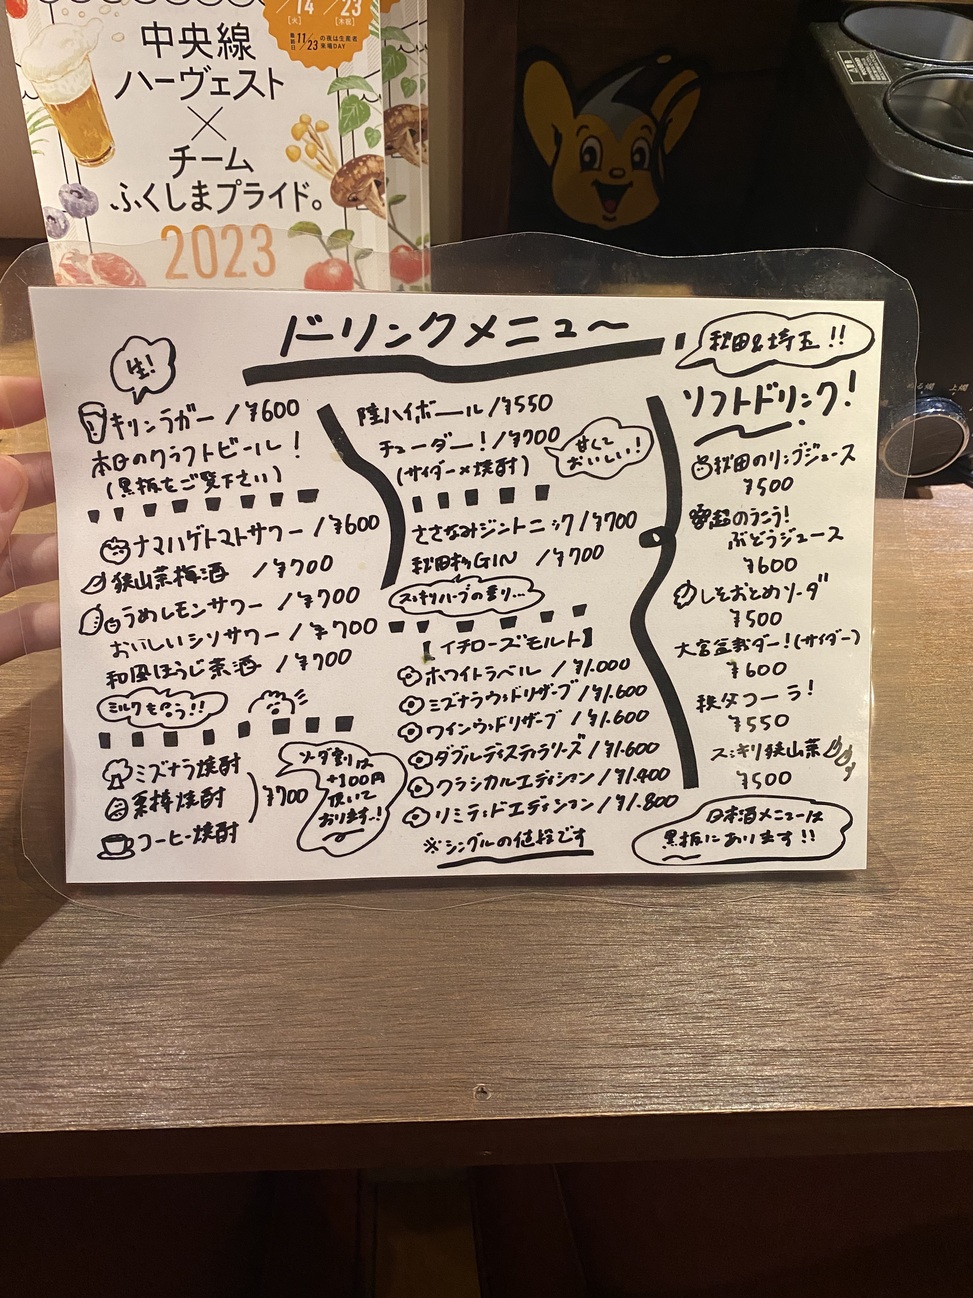 14 [火]
23 [木祝]
11/23の夜は生産者
来場DAY
中央線
ハーヴェスト
×
チーム
ふくしまプライド。
2023
ドリンクメニュ〜
秋田&埼玉!!
生!
キリンラガー /¥600
本日のクラフトビール!
(黒板をご覧下さい)
ナマハゲトマトサワー /¥600
狭山茶梅酒 /¥700
うめレモンサワー /¥700
おいしいシソサワー /¥700
和風ほうじ茶酒 /¥700
ミルクも合う!!
ミズナラ焼酎
栗棒焼酎
コーヒー焼酎
¥700
ソーダ割は
+100円
頂いて
おります..!
陸ハイボール /¥550
チューダー! /¥700
(サイダー×焼酎)
甘くて
おいしい!
ささなみジントニック /¥700
秋田杉GIN /¥700
スッキリハーブの香り...
【イチローズモルト】
ホワイトラベル /¥1.000
ミズナラウッドリザーブ /¥1.600
ワインウッドリザーブ /¥1.600
ダブルディスティラリーズ /¥1.600
クラシカルエディション /¥1.400
リミテッドエディション /¥1.800
※シングルの値段です
ソフトドリンク!
秋田のリンゴジュース
¥500
のうこう!
ぶどうジュース
¥600
しそおとめソーダ
¥500
大宮盆栽ダー!(サイダー)
¥600
秩父コーラ!
¥550
スッキリ狭山茶
¥500
日本酒メニューは
黒板にあります!!